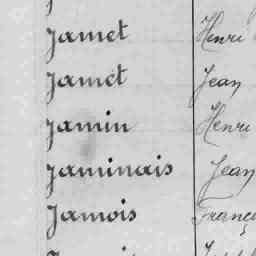 Jamet Henri
Jamet Jean
Jamin Henri
Jaminais Jean
Jamois